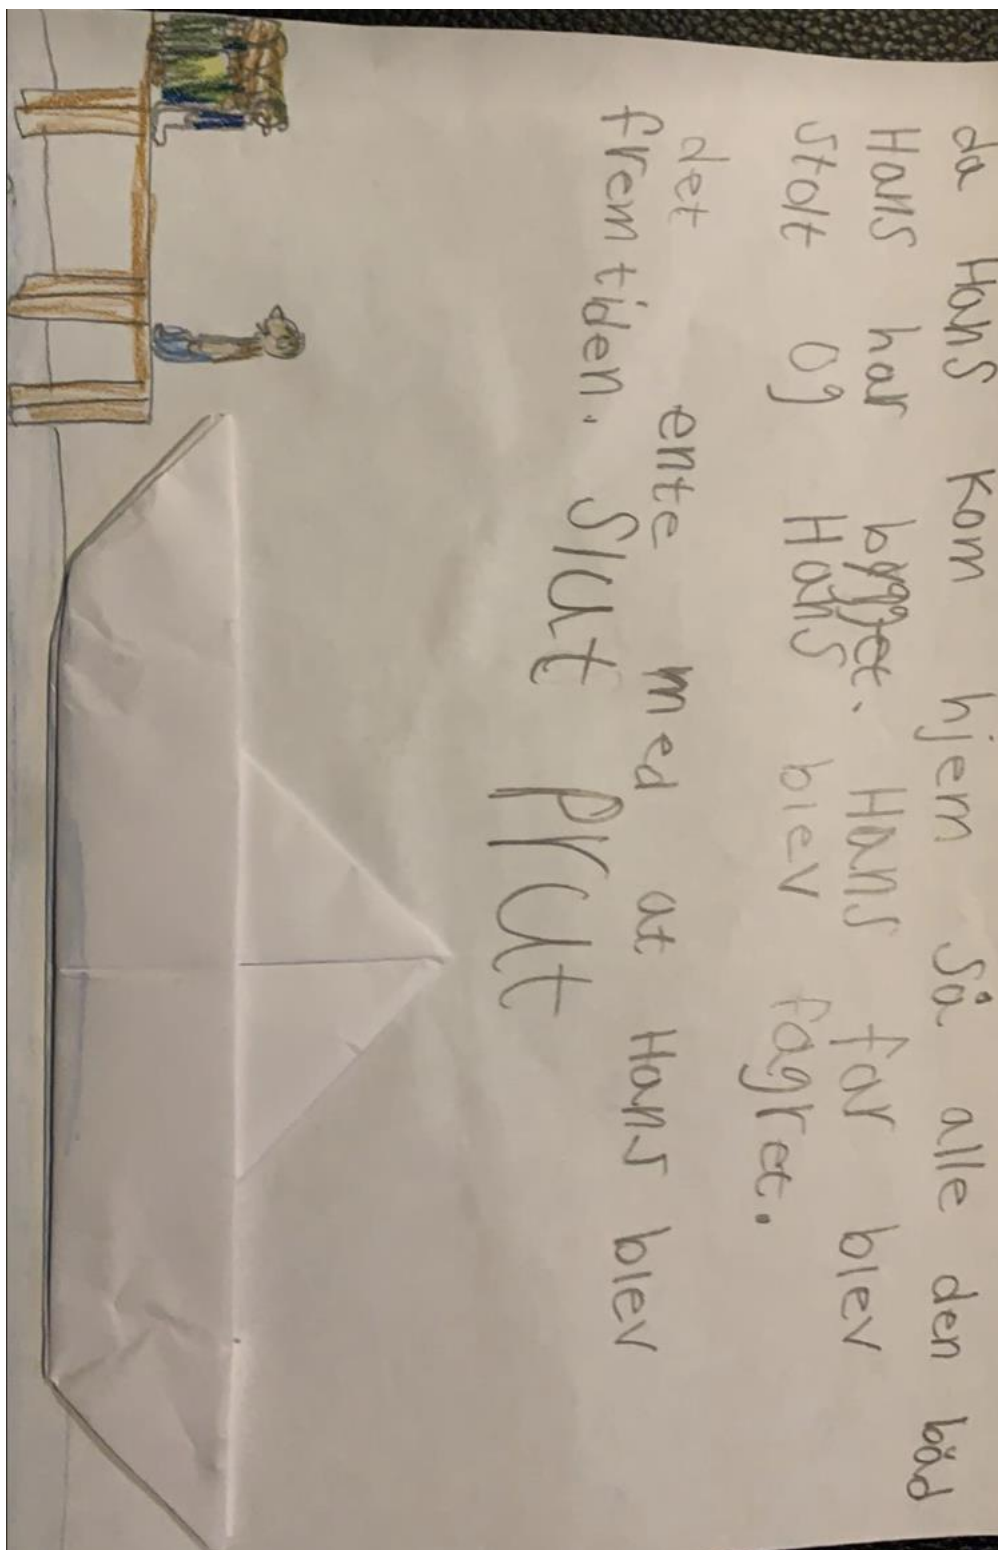 da Hans kom hjem så alle den båd
Hans har bygget. Hans far blev
stolt og Hans blev fagret.
det ente med at Hans blev
fremtiden. Slut prut